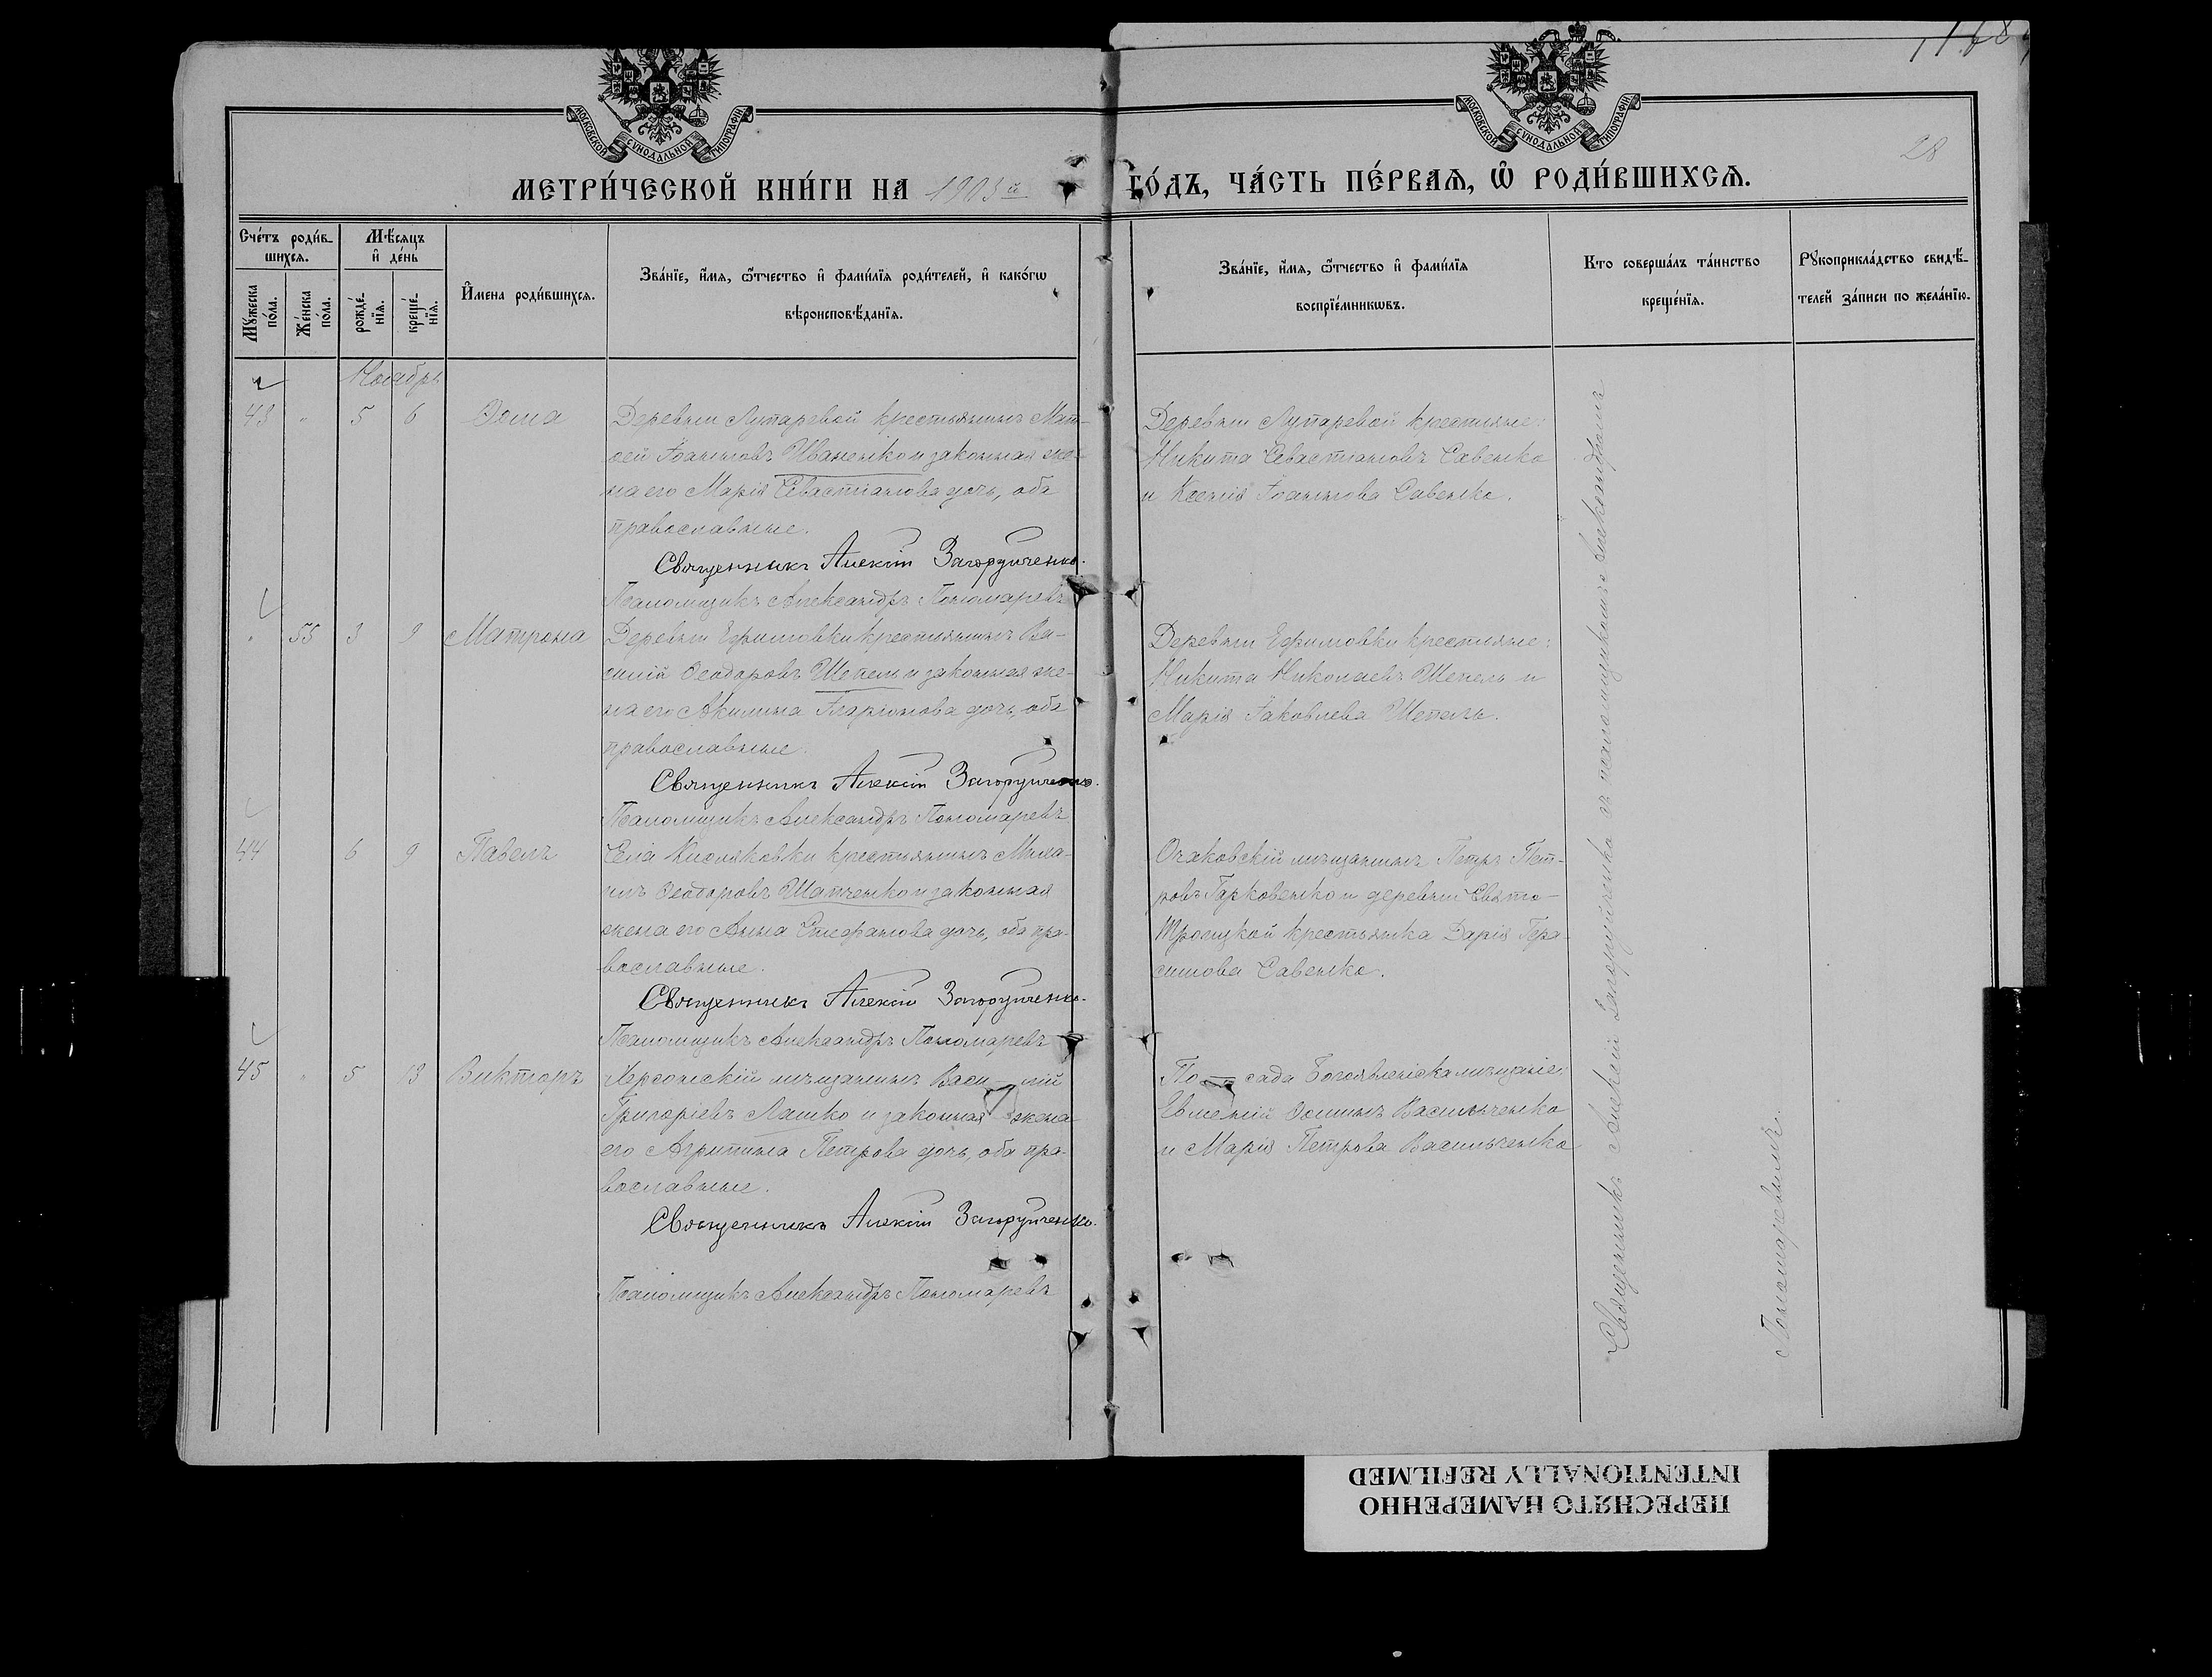 1168
28
МОСКОВСКОЙ СУНОДАЛЬНОЙ ТИПОГРАФІИ
МОСКОВСКОЙ СУНОДАЛЬНОЙ ТИПОГРАФІИ
МЕТРИ́ЧЕСКОЙ КНИ́ГИ НА 1903й ГО́ДЪ, ЧА́СТЬ ПЕ́РВАѦ, Ѡ҆ РОДИ́ВШИХСѦ.
Сче́тъ роди́в-
шихсѧ.
Мꙋ́жеска по́ла.
Же́нска по́ла.
Мѣ́сѧцъ
и҆ де́нь
рожде́-нїѧ.
креще́-нїѧ.
И҆мена роди́вшихсѧ.
Зва́нїе, и҆́мѧ, ѻ҆́тчество и҆ фами́лїѧ роди́телей, и҆ како́гѡ
вѣроисповѣ́данїѧ.
Зва́нїе, и҆́мѧ, ѻ҆́тчество и҆ фами́лїѧ
воспрїе́мникѡвъ.
Кто соверша́лъ та́инство
креще́нїѧ.
Рꙋкоприкла́дство свидѣ́-
телей за́писи по жела́нїю.
Ноябрь
43 " 5 6 Ѳома
Деревни Лупаревой крестьянинъ Мат-
ѳей Іоанновъ Иваненко и законная же-
на его Марія Севастіанова дочь, оба
православные.
Священникъ Алексій Загоруйченко.
Псаломщикъ Александръ Пономаревъ
Деревни Лупаревой крестьяне:
Никита Севастіановъ Савенко
и Ксенія Іоаннова Савенко.
" 55 3 9 Матрона
Деревни Ефимовки крестьянинъ Ва-
силій Ѳеодоровъ Шепель и законная же-
на его Акилина Иларіонова дочь, оба
православные.
Священникъ Алексій Загоруйченко.
Псаломщикъ Александръ Пономаревъ
Деревни Ефимовки крестьяне:
Никита Николаевъ Шепель и
Марія Іаковлева Шепель.
44 6 9 Павелъ
Села Кисляковки крестьянинъ Миха-
илъ Ѳеодоровъ Шапченко и законная
жена его Анна Стефанова дочь, оба пра-
вославные.
Священникъ Алексій Загоруйченко.
Псаломщикъ Александръ Пономаревъ
Очаковскій мѣщанинъ Петръ Пет-
ровъ Гарковенко и деревни Свято-
Троицкой крестьянка Дарія Гера-
симова Савенко.
45 " 5 13 Викторъ
Херсонскій мѣщанинъ Васи-лій
Григоріевъ Ляшко и законная жена
его Агрипина Петрова дочь, оба пра-
вославные.
Священникъ Алексій Загоруйченко.
Псаломщикъ Александръ Пономаревъ
По-сада Богоявленска мѣщане:
Евменій Ѳоминъ Васильченко
и Марія Петрова Васильченко
Священникъ Алексій Загоруйченко съ псаломщикомъ Александромъ
Пономаревымъ.
ПЕРЕСНЯТО НАМЕРЕННО
INTENTIONALLY REFILMED